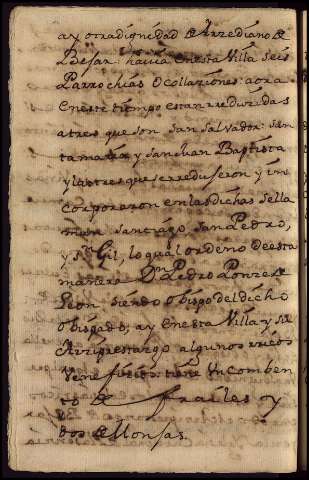 ay otra dignidad de Arzediano de
Bejar: havia en esta Villa seis
Parrochias o collaziones: aora
en este tiempo estan rreduzidas
a tres que son San Salvador: San
ta maria y San Juan Baptista
y las tres que se rredujeron y in
corporaron en las dichas se lla
man Santiago, San Pedro,
y sn Gil, lo qual ordeno de esta
manera Dn Pedro Ponze de
Leon siendo obispo del dicho
obispado, ay en esta Villa y su
Arziprestazgo algunos rricos
Venefizios: tiene un comben
to de frailes y
dos de Monjas.